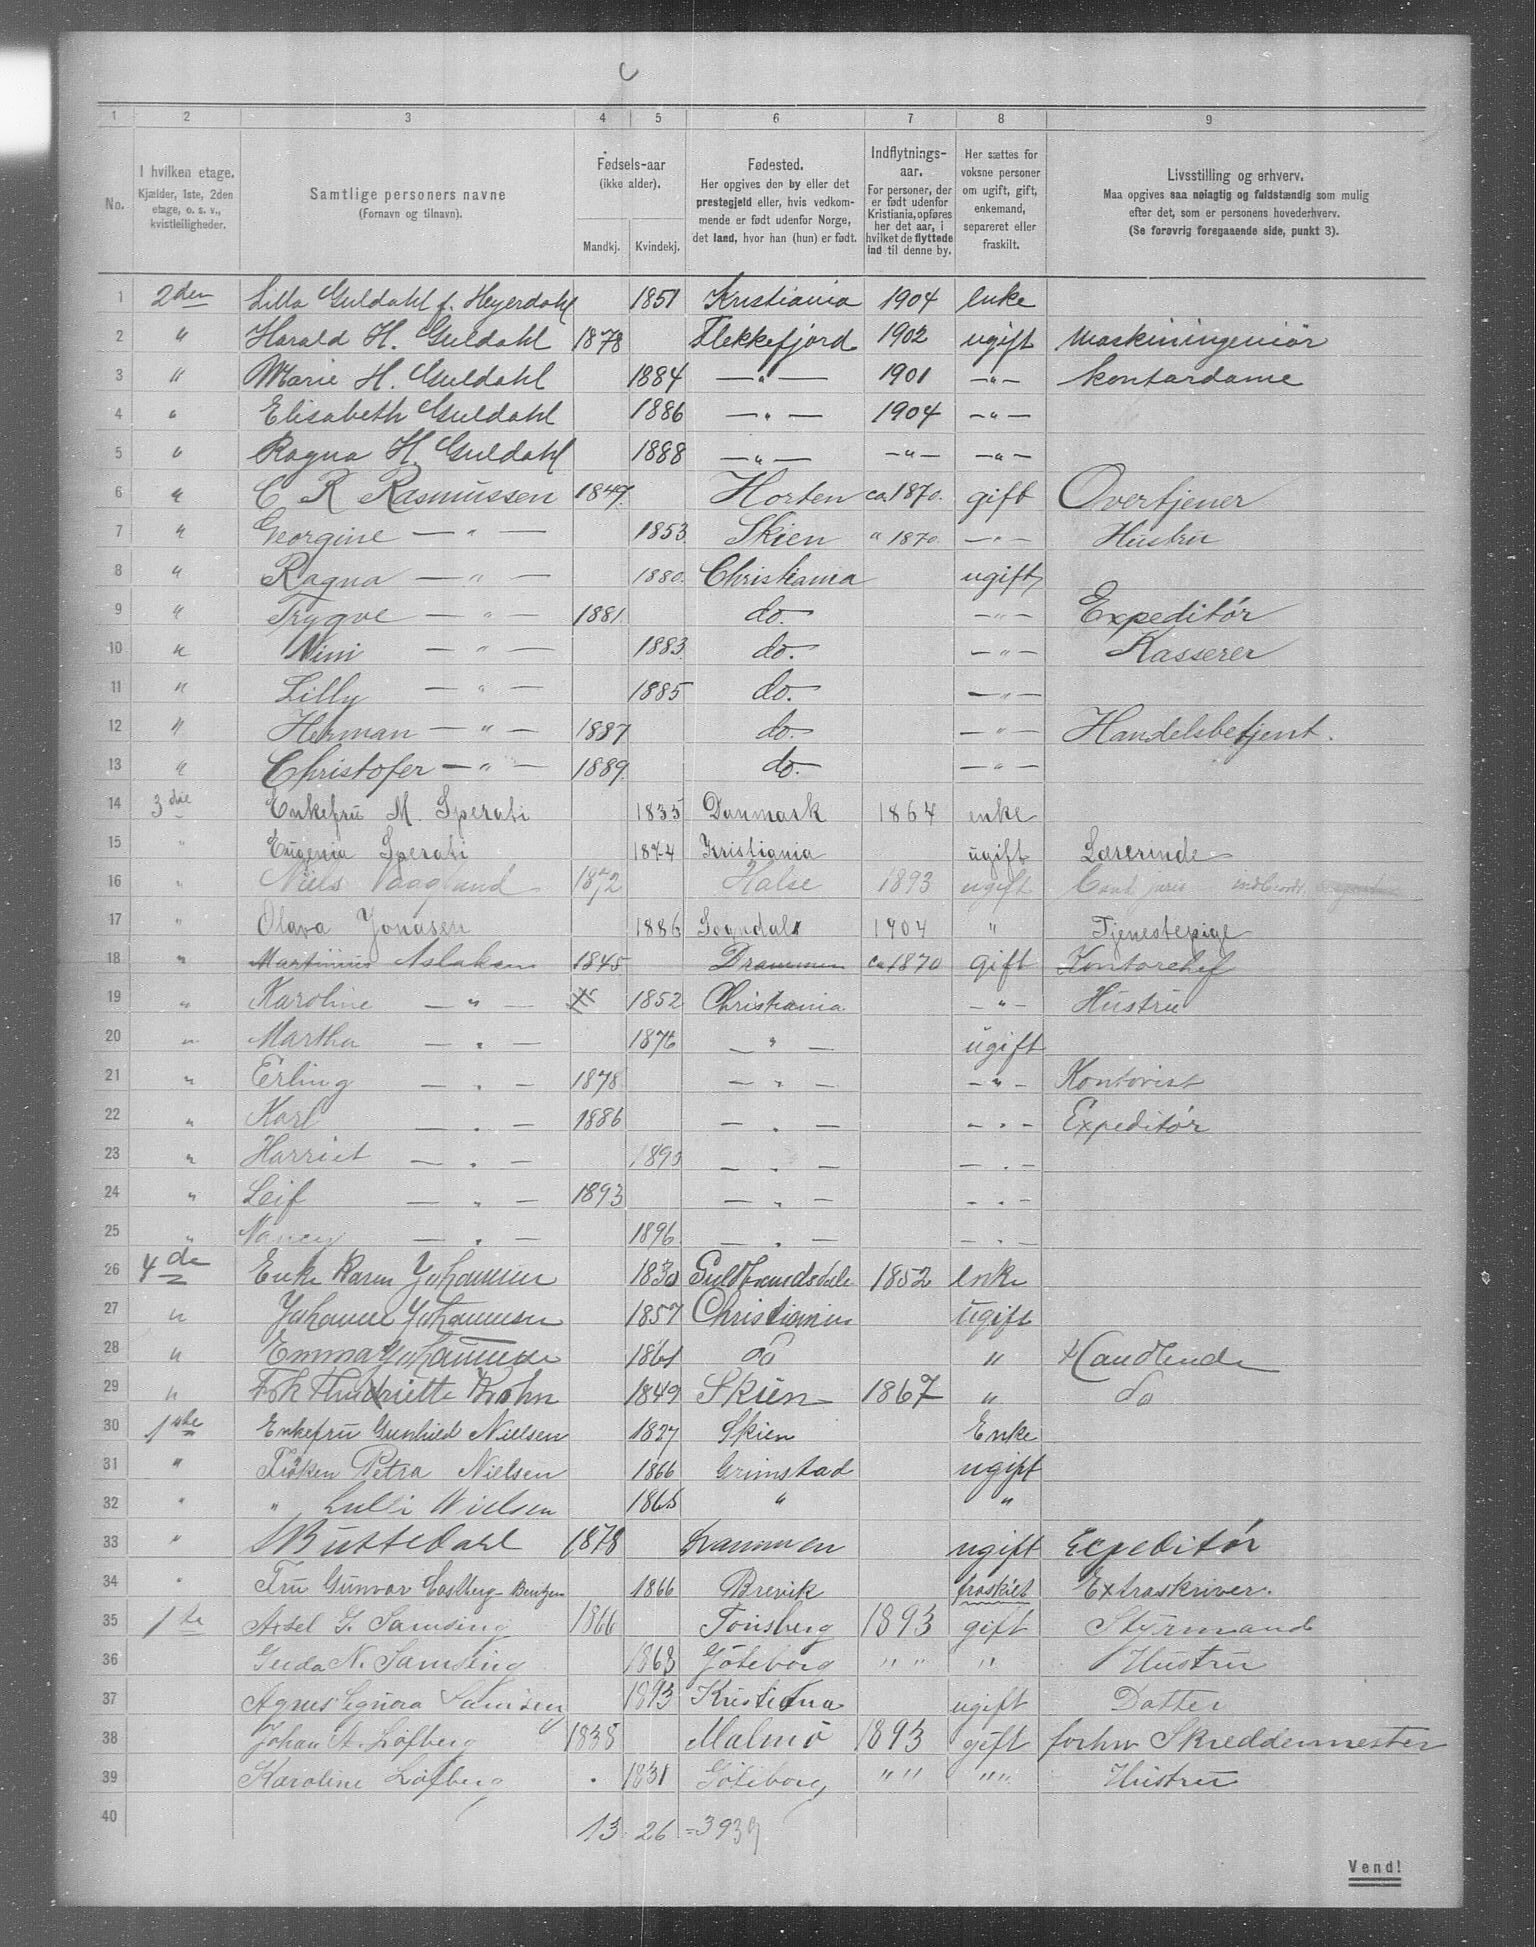 1 2 3 4 5 6 7 8 9
No.
I hvilken etage.
Kjælder, 1ste, 2den
etage, o. s. v.,
kvistleiligheder.
Samtlige personers navne
(Fornavn og tilnavn).
Fødsels-aar
(ikke alder).
Mandkj. Kvindekj.
Fødested.
Her opgives den by eller det
prestegjeld eller, hvis vedkom-
mende er født udenfor Norge,
det land, hvor han (hun) er født.
Indflytnings-
aar.
For personer, der
er født udenfor
Kristiania, opføres
her det aar, i
hvilket de flyttede
ind til denne by.
Her sættes for
voksne personer
om ugift, gift,
enkemand,
separeret eller
fraskilt.
Livsstilling og erhverv.
Maa opgives saa nøiagtig og fuldstændig som mulig
efter det, som er personens hovederhverv.
(Se forøvrig foregaaende side, punkt 3).
1 2den Lilla Guldahl f. Heyerdahl 1851 Kristiania 1904 enke
2 " Harald H. Guldahl 1878 Flekkefjord 1902 ugift Maskiningeniør
3 " Marie H. Guldahl 1884 — " — 1901 — " — Kontordame
4 " Elisabeth Guldahl 1886 — " — 1904 — " —
5 " Ragna H. Guldahl 1888 — " — — " — — " —
6 " C R Rasmussen 1847 Horten ca 1870. gift Overtjener
7 " Georgine — " — 1853 Skien " 1870 — " — Hustru
8 " Ragna — " — 1880. Christiania ugift
9 " Trygve — " — 1881 do. — " — Expeditør
10 " Nini — " — 1883 do. — " — Kasserer
11 " Lilly — " — 1885 do. — " —
12 " Herman — " — 1887 do. — " — Handelsbetjent.
13 " Christofer — " — 1889 do. — " —
14 3die Enkefru M. Sperati 1835 Danmark 1864 enke
15 " Eugenia Sperati 1874 Kristiania ugift Lærerinde
16 " Niels Vaagland 1872 Halse 1893 ugift Cand juris
17 " Olava Jonasen 1886 Sogndal 1904 " Tjenestepige
18 " Martinius Aslaksen 1845 Drammen ca 1870 gift Kontorchef
19 " Karoline — " — 1852 Christiania — " — Hustru
20 " Martha — " — 1876 — " — ugift
21 " Erling — " — 1878 — " — — " — Kontorist
22 " Karl — " — 1886 — " — — " — Expeditør
23 " Harriet — " — 1893 — " — — " —
24 " Leif — " — 1893 — " — — " —
25 " Nancy — " — 1896 — " — — " —
26 4de Enke Karen Johannesen 1830 Guldbrandsdale 1852 enke
27 " Johanne Johannesen 1857 Christiania ugift
28 " Emma Johannesen 1861 do " Handlende
29 " Frk Hendriette Krohn 1849 Skien 1867 " do
30 1ste Enkefru Gunhild Nielsen 1827 Skien Enke
31 " Frøken Petra Nielsen 1866 Grimstad ugift
32 " " Lulli Nielsen 1868 " "
33 " 1878 Drammen ugift Expeditør
34 " Fru Gunvor Castberg Bentzen 1866 Brevik fraskilt Extraskriver.
35 1ste Axel G. Samsing 1866 Tønsberg 1893 gift Styrmand
36 Gerda N. Samsing 1868 Göteborg " " " Hustru
37 Agnes Samsing 1893 Kristiania ugift Datter
38 Johan A. Löfberg 1838 Malmö 1893 gift forhv Skreddermester
39 Karoline Löfberg 1831 Göteborg " " " " Hustru
40
13 26 = 39 39
Vend!